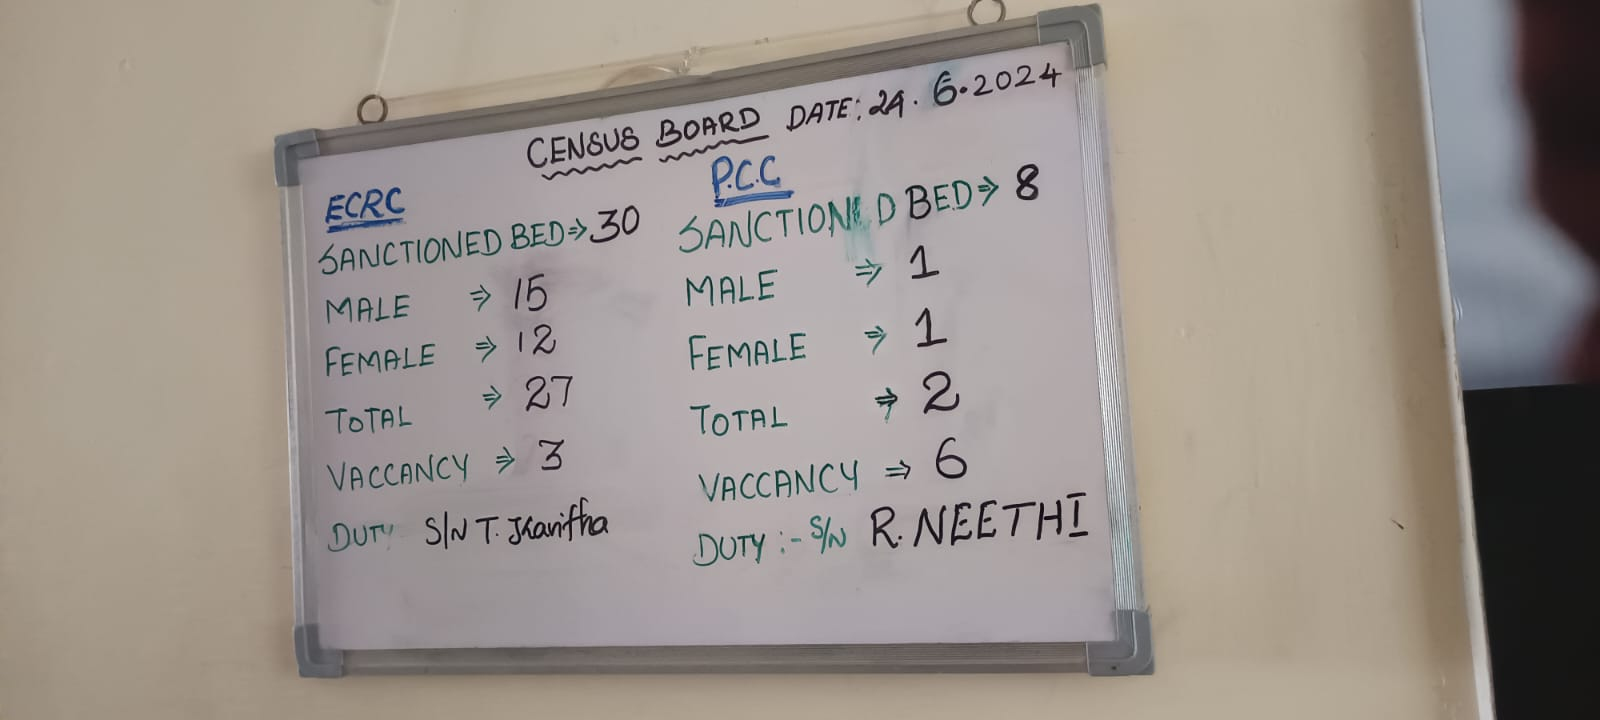 CENSUS BOARD DATE: 24.6.2024
ECRC
SANCTIONED BED ⇒ 30
MALE ⇒ 15
FEMALE ⇒ 12
TOTAL ⇒ 27
VACCANCY ⇒ 3
DUTY S/N T.
P.C.C
SANCTIONED BED ⇒ 8
MALE ⇒ 1
FEMALE ⇒ 1
TOTAL ⇒ 2
VACCANCY ⇒ 6
DUTY :- S/N R. NEETHI